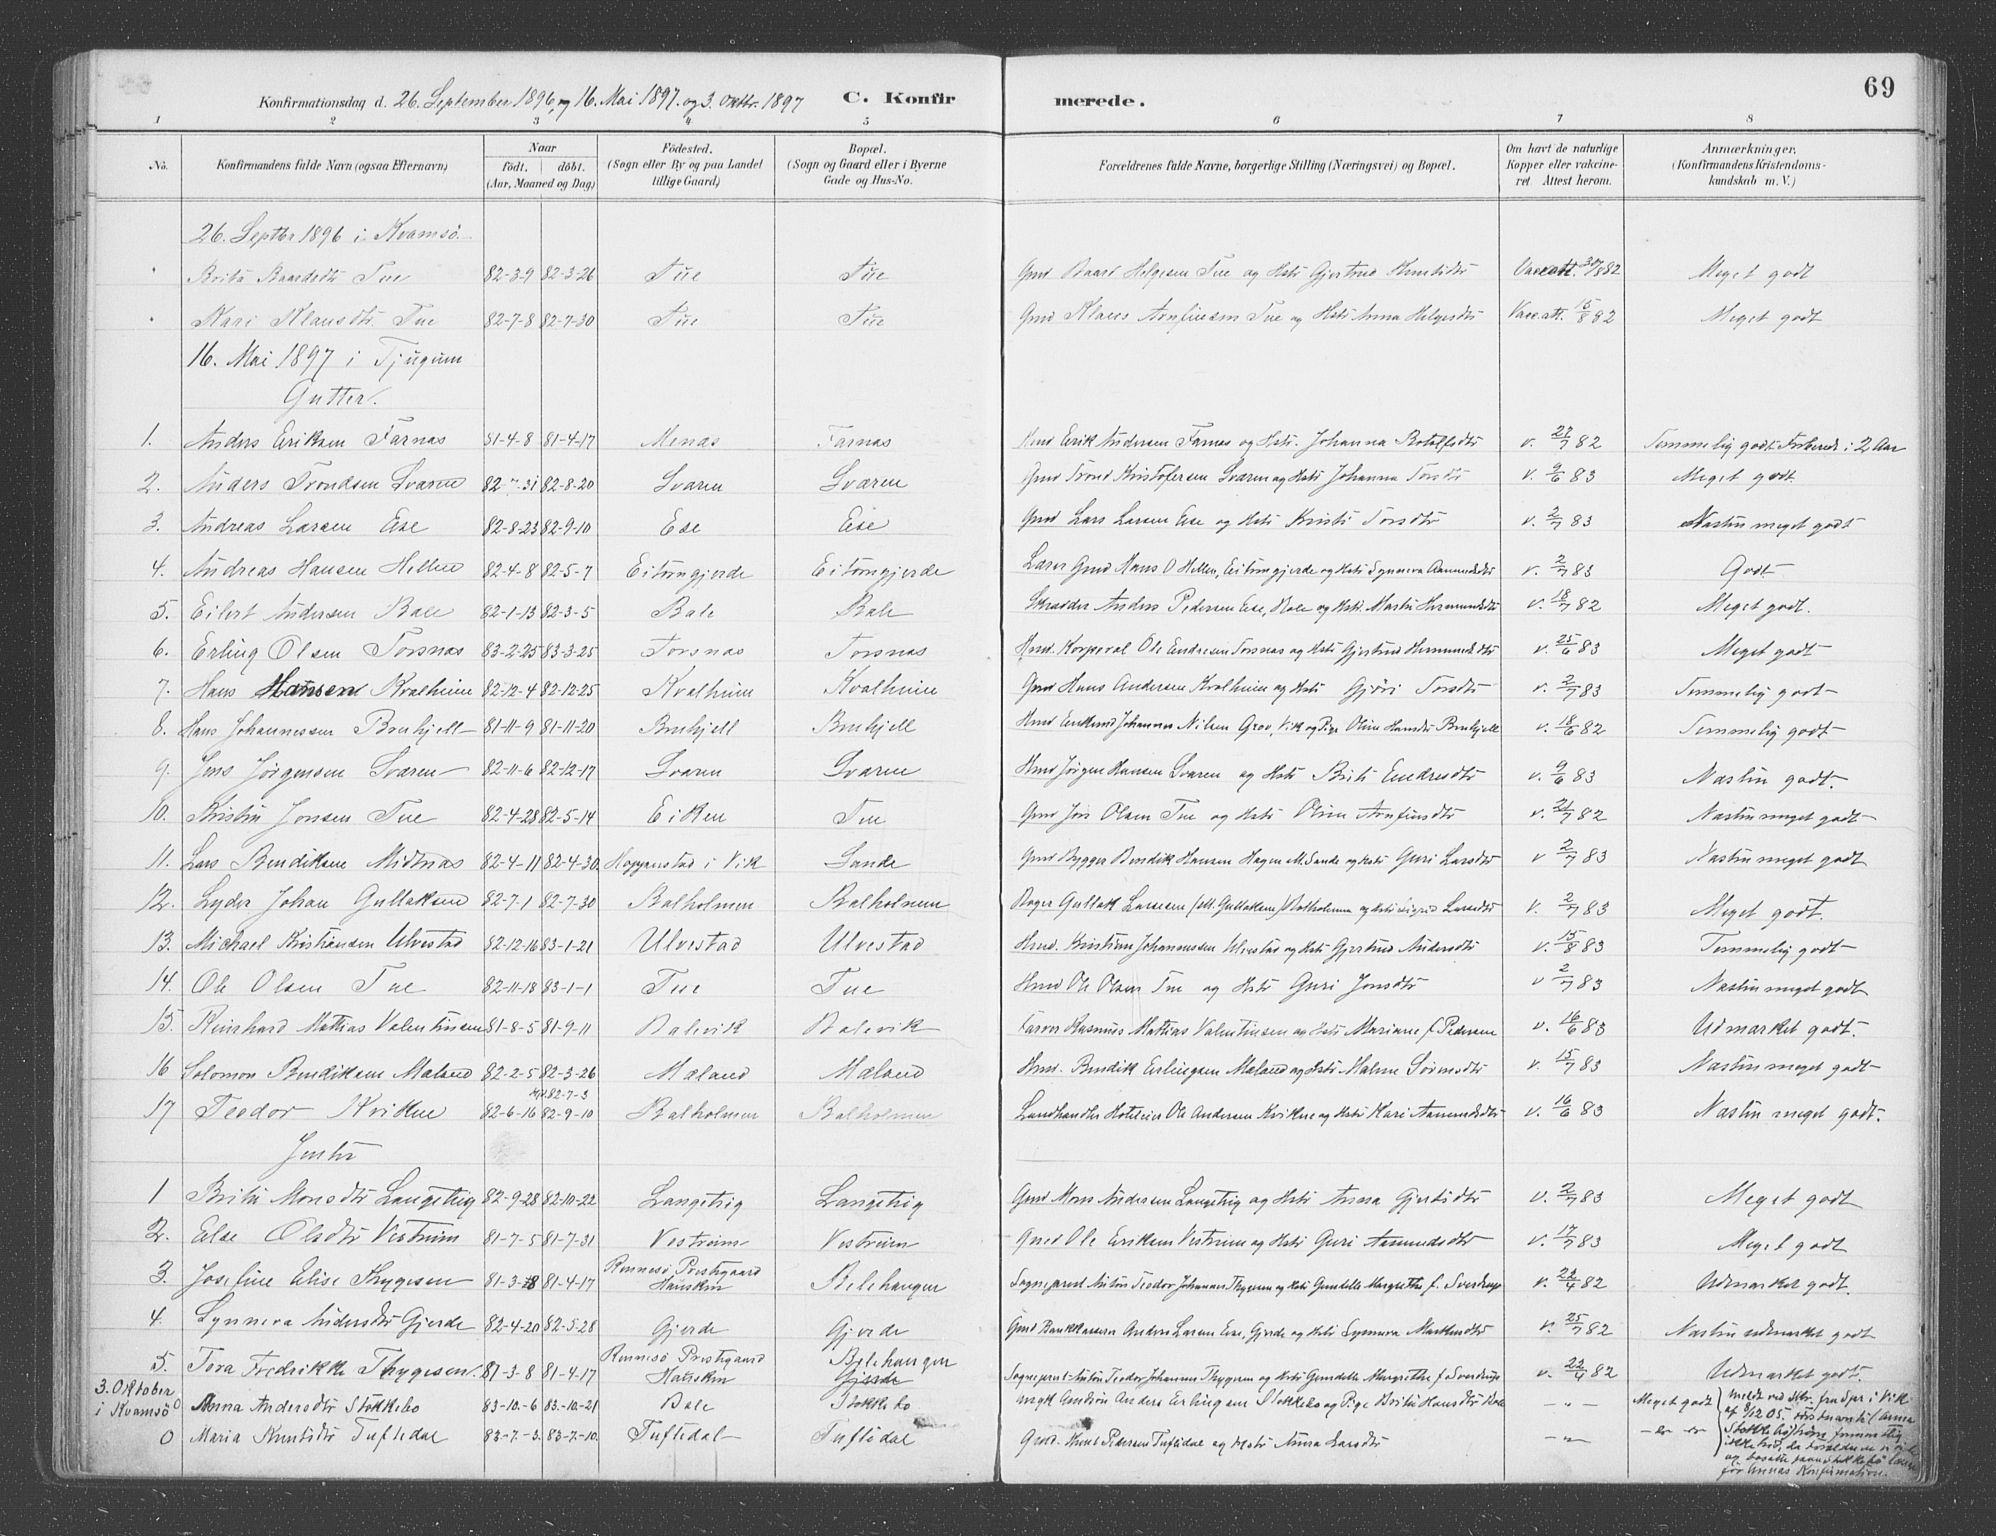 69
Konfirmationsdag d. 26. September 1896, og 16. Mai 1897. og 3. Oktbr. 1897 C. Konfirmerede.
1 2 3 4 5 6 7 8
No. Konfirmandens fulde Navn (ogsaa Efternavn) Naar födt. döbt. (Aar, Maaned og Dag) Födested. (Sogn eller By og paa Landet tillige Gaard.) Bopæl. (Sogn og Gaard eller i Byerne Gade og Hus-No. Forældrenes fulde Navne, borgerlige Stilling (Næringsvei) og Bopæl. Om havt de naturlige Kopper eller vakcineret. Attest herom. Anmærkninger. (Konfirmandens Kristendomskundskab m. V.)
26. Septbr 1896 i Kvamsö.
Brita Baardsdtr Tue 82-3-9 82-3-26 Tue Tue Gmd Baard Helgesen Tue og Hst. Gjertrud Knutsdtr Meget godt
Kari Klausdtr. Tue 82-7-8 82-7-30 Tue Tue Gmd Klaus Arnfinsen Tue og Hst. Anna Helgesdtr Vacc.att. 15/8 82 Meget godt
16. Mai 1897 i Tjugum
Gutter.
1. Anders Eriksen Farnes 81-4-8 81-4-17 Menes Farnes Erik Andersen Farnes og Hst. Johanna Botolfsdtr v. 27/7 82 Temmelig godt. Forbered. i 2 Aar
2. Anders Trondsen Sværen 82-7-31 82-8-20 Sværen Sværen Gmd Trond Kristofersen Sværen og Hst. Johanna v. 9/6 83 Meget godt
3. Andreas Larsen Ese 82-8-23 82-9-10 Ese Ese Gmd Lars Larsen Ese og Hst. Kristi Torsdtr v. 2/7 83 Næsten meget godt
4. Andreas Hansen Hellen 82-4-8 82-5-7 Eitorngjerde Eitorngjerde Lærer Gmd Hans O Hellen, Eitorngjerde og Hst. Synneva Aamundsdtr v. 2/7 83 Godt
5. Eilert Andersen Bale 82-1-13 82-3-5 Bale Bale Skrædder Anders Pedersen Ese, Bale og Hst. Marta Hermundsdtr v. 18/7 82 Meget godt.
6. Erling Olsen Torsnes 83-2-25 83-3-25 Torsnes Torsnes Hmd. Korporal Ole Endresen Torsnes og Hst. Gjertrud Hermundsdtr v. 25/6 83 Meget godt
7. Hans Hansen Kvalheim 82-12-4 82-12-25 Kvalheim Kvalheim Gmd Hans Andersen Kvalheim og Hst. Gjöri Torsdtr v. 2/7 83 Temmelig godt
8. Hans Johannessen Brahjell 81-11-9 81-11-20 Brahjell Brahjell Hmd Enkemd Johannes Nilsen Grov, Vik og Pige Olina Hansdtr Brahjell v. 18/6 82 Temmelig godt
9. Jens Jörgensen Sværen 82-11-6 82-12-17 Sværen Sværen Hmd Jörgen Hansen Sværen og Hst. Brita Endresdtr v. 9/6 83 Næsten godt.
10. Kristen Jonsen Tue 82-4-28 82-5-14 Eiken Tue Gmd Jon Olsen Tue og Hst. Olina Arnfinsdtr v. 21/7 82 Næsten meget godt
11. Lars Bendiksen Midtnæs 82-4-11 82-4-30 Hopperstad i Vik Sande Gmd Bygger Bendik Hansen Hagen M. Sande og Hst. Guri Larsdtr v 2/7 83 Næsten meget godt
12. Lyder Johan Gullaksen 82-7-1 82-7-30 Balholmen Balholmen Bager Gullak Larsen (M. Gullaksen) Balholmen og Hst. Sigrid Larsdtr v. 2/7 83 Meget godt.
13. Michael Kristiansen Ulvestad 82-12-16 83-1-21 Ulvestad Ulvestad Hmd. Kristian Johannessen Ulvestad og Hst. Gjertrud Andersdtr v. 15/8 83 Temmelig godt
14. Ole Olsen Tue 82-11-18 83-1-1 Tue Tue Hmd Ole Olsen Tue og Hst. Guri Jonsdtr v 2/7 83 Næsten meget godt
15. Reinhard Mathias Valentinsen 81-8-5 81-9-11 Balevik Balevik Garver Rasmus Mathias Valentinsen og Hst. Mariane f. Pedersen v. 16/6 83 Udmærket godt.
16 Solomon Bendiksen Mæland 82-2-5 82-3-26 Mæland Mæland Hmd. Bendik Erlingsen Mæland og Hst. Malene Simonsdtr v. 15/7 83 Næsten meget godt
17 Teodor Kvikne 82-6-16 82-7-3 82-9-10 Balholmen Balholmen Landhandler Hoteleier Ole Andersen Kvikne og Hst. Kari Aamundsdtr v. 16/6 83 Næsten meget godt.
Jenter
1 Brita Monsdtr Langeteig 82-9-28 82-10-22 Langeteig Langeteig Gmd Mons Andersen Langeteig og Hst. Anna Gjertsdtr v. 2/7 83 Meget godt
2. Else Olsdtr Vestreim 81-7-5 81-7-31 Vestreim Vestreim Gmd Ole Eriksen Vestreim og Hst. Guri Aamundsdtr v. 17/7 83 Meget godt
3. Josefine Elise Thygesen 81-3-8 81-4-17 Rennesö Prestgaard Hauskin Belehaugen Sogneprest Anton Teodor Johannes Thygesen og Hst. Gundelle Margrethe f. Sverdrup v. 22/4 82 Udmærket godt.
4. Synneva Andersdtr Gjerde 82-4-20 82-5-28 Gjerde Gjerde Gmd Bankkasserer Anders Larsen Ese, Gjerde og Hst. Synneva Markusdtr v. 25/7 82 Næsten udmærket godt
5. Tora Fredrikke Thygesen. 81-3-8 81-4-17 Rennesö Prestgaard Hauskin Belehaugen Gjerde Sogneprest Anton Teodor Johannes Thygesen og Hst. Gundelle Margrethe f. Sverdrup v. 22/4 82 Udmærket godt.
3. Oktober i Kvamsö
0 Anna Andersdtr Stokkebö 83-10-6 83-10-21 Bale Stokkebö Anders Erlingsen Stokkebö og Pige Brita Hansdtr Bale -"- Meget godt
0 Maria Knutsdtr Tuftedal 83-7-3. 83-7-10. Tuftedal Tuftedal Gmd. Knut Pedersen Tuftedal og Hst. Anna Larsdtr -"-
for Annas Konfirmation.